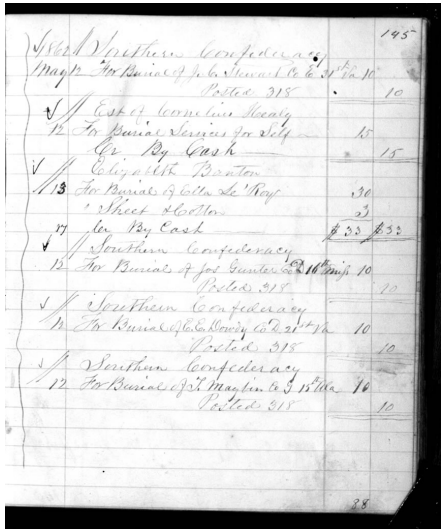 145
1862 // Southern Confederacy
May 12 For Burial of J. C. Stewart Co E 31st Va 10
Posted 318 10
// Est of Cornelius Healy
12 For Burial Services for Self 15
Cr By Cash 15
// Elizabeth Banton
13 For Burial of Ella Le'Roy 30
" Sheet & Cotton 3
17 Cr By Cash $33 $33
// Southern Confederacy
12 For Burial of Jos Gunter Co D 16th Miss 10
Posted 318 10
// Southern Confederacy
12 For Burial of E. C. Dowdy Co D 21st Va 10
Posted 318 10
// Southern Confederacy
12 For Burial of T. Mayfin Co G 15th Ala 10
Posted 318 10
88